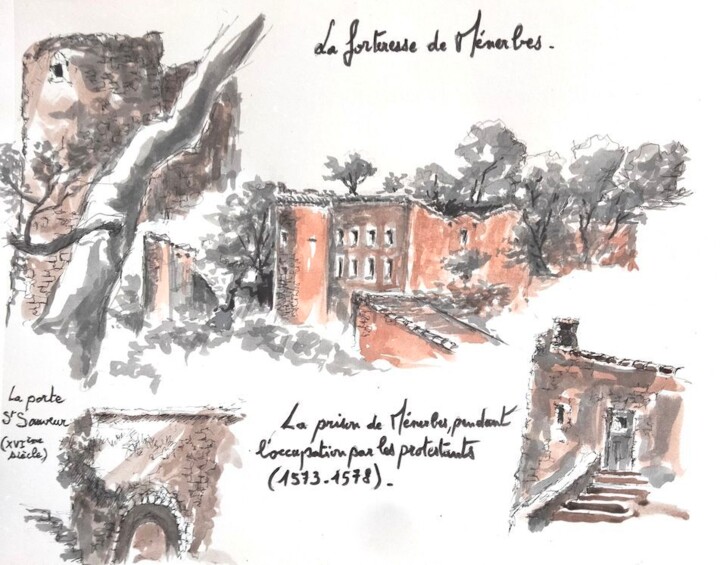 La forteresse de Ménerbes.
La porte
St Sauveur
(XVIème
siècle)
La prison de Ménerbes, pendant
l'occupation par les protestants
(1573-1578).